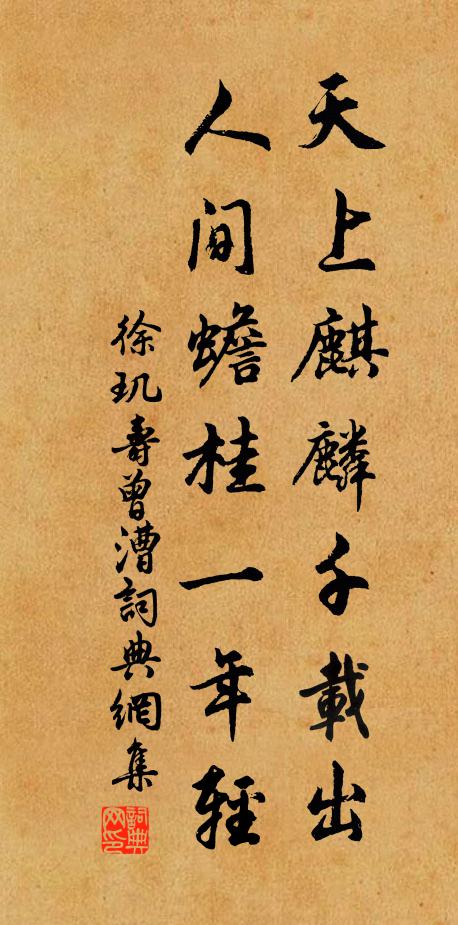 天上麒麟千載出
人間蟾桂一年輕
徐玑壽曾漕詞典網集
詞典网印